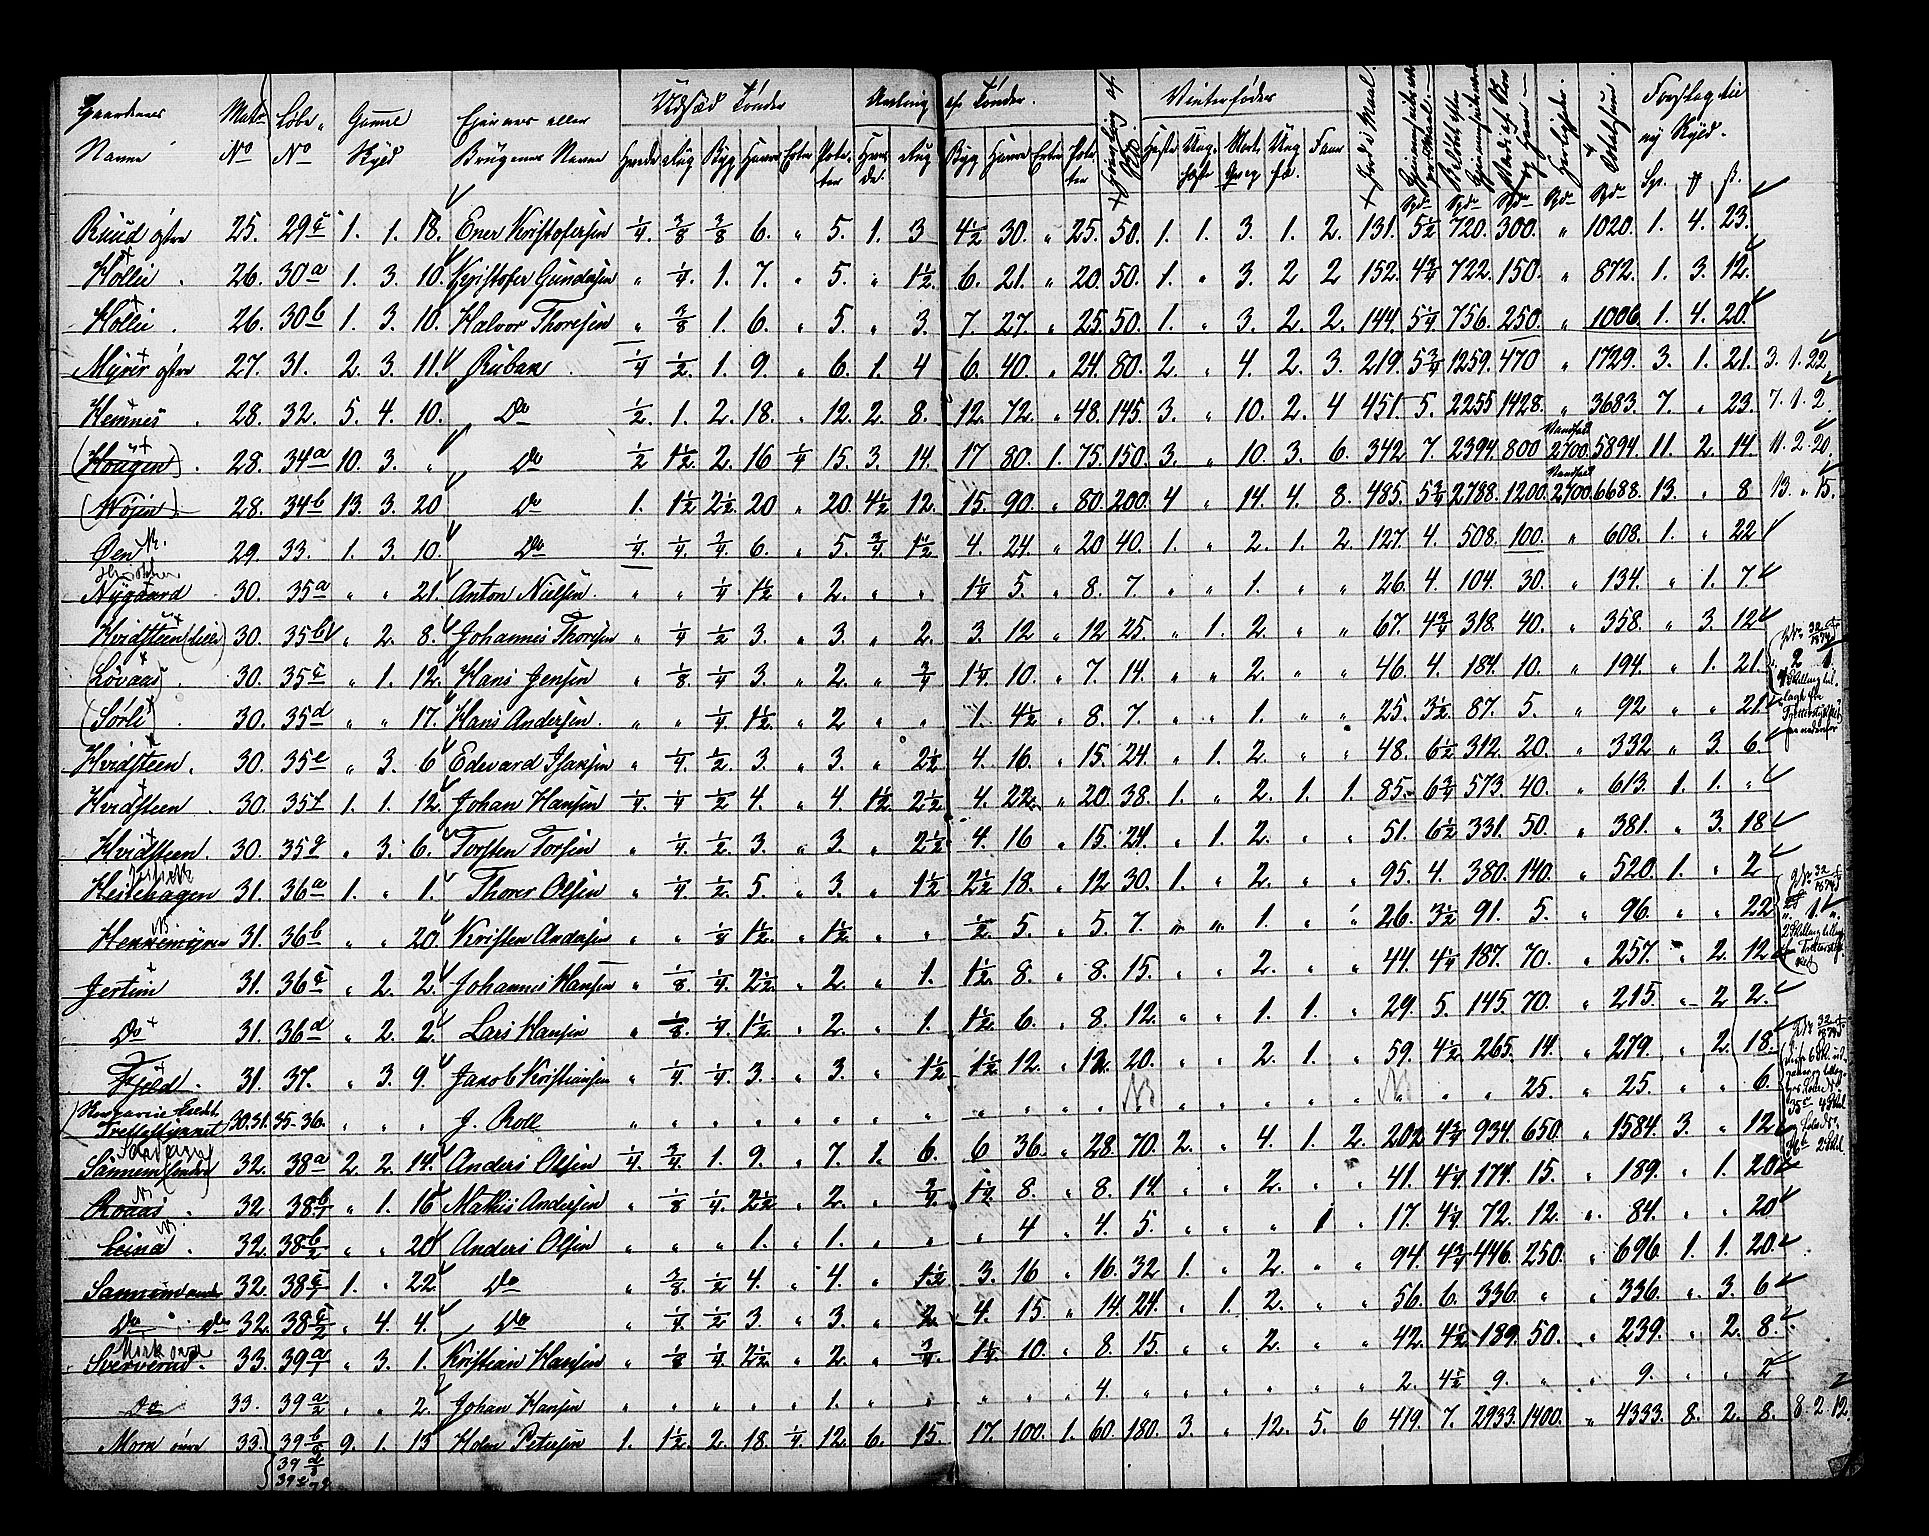 Gaardenes Navne | Matr. No | Löbe No | Gammel Skyld | Eiernes eller Brugernes Navne | Udsæd Tönder | Avling af Tönder | Vinterföder | Forslag til ny Skyld
Hvede Rug Byg Havre Erter Poteter | Hvede Rug | Byg Havre Erter Poteter
Ruud östre 25. 29c 1. 1. 18. Ener Kristofersen 1/4. 3/8 3/8 6. „ 5. 1. 3 4 1/2 30. „ 25. 50. 1. 1. 3. 1. 2. 131. 5 1/2 720. 300. „ 1020. 1. 4. 23.
Kollie . 26. 30a 1. 3. 10. Kristofer Gundersen „ 1/4. 1. 7. „ 5. „ 1 1/2. 6. 21. „ 20. 50. 1. „ 3. 2 2 152. 4 3/4 722. 150. „ 872. 1. 3. 12.
Kollie . 26. 30b 1. 3. 10. Halvor Thoresen „ 3/8 1. 6. „ 5. „ 3. 7. 27. „ 25. 50. 1. „ 3. 2. 2. 144. 5 1/4 756. 250. „ 1006. 1. 4. 20.
Myrer östre 27. 31. 2. 3. 11. Ruban 1/4 1/2. 1. 9. „ 6. 1. 4 6. 40. „ 24. 80. 2. „ 4. 2. 3. 219. 5 3/4 1259. 470 „ 1729. 3. 1. 21. 3. 1. 22.
Hemnes . 28. 32. 5. 4. 10. Do 1/2. 1. 2. 18. „ 12. 2. 8. 12. 72. „ 48. 145. 3. „ 10. 2. 4 451. 5. 2255 1428. „ 3683. 7. „ 23. 7. 1. 2.
(Hougen) . 28. 34a 10. 3. „ Do 1/2 1 1/2. 2. 16 1/4 15. 3. 14. 17 80. 1. 75. 150. 3. „ 10. 3. 6. 342. 7. 2394. 800 Vandfald 2700. 5894. 11. 2. 14. 11. 2. 20.
28. 34b 13. 3. 20 Do 1. 1 1/2 2 1/2. 20 „ 20. 4 1/2 12. 15. 90. „ 80. 200. 4 „ 14. 4. 8. 485. 5 3/4 2788. 1200. Vandfald 2700. 6688. 13. „ 8 13. „ 15.
Öen 29. 33. 1. 3. 10. Do 1/4. 1/4. 3/4 6. „ 5. 3/4. 1 1/2 4. 24. „ 20 40. 1. „ 2. 1. 2. 127. 4. 508. 100. „ 608. 1. „ 22
Nygaard . 30. 35a „ „ 21. Anton Nielsen. „ „ 1/4. 1 1/2 „ 2. „ „ 1 1/4 5. „ 8. 7. „ „ 1. „ „ 26. 4. 104. 30. „ 134. „ 1. 7.
Hvidsteen (lille) 30. 35b „ 2. 8. Johannes Thoresen „ 1/4 1/2 3. „ 3. „ 2. 3. 12 „ 12 25. „ 1. 2. „ „ 67. 4 3/4 318. 40. „ 358. „ 3. 12
(Lövaas) . 30. 35c „ 1. 12. Hans Jensen „ 1/8. 1/4. 3. „ 2. „ 3/4 1 1/4. 10. „ 7. 14. „ „ 2. „ „ 46. 4. 184. 10. „ 194. „ 1. 21.
(Sörli) . 30. 35d „ „ 17. Hans Andersen. „ „ 1/4. 1 1/2. „ 2 „ „ 1. 4 1/2 „ 8. 7. „ „ 1. „ „ 25. 3 1/2. 87. 5. „ 92 „ „ 21.
Hvidsteen . 30. 35e „ 3. 6 Edevard Isaksen „ 1/4. 1/2. 3. „ 3. „ 2 1/2 4. 16. „ 15. 24. „ 1. 2. „ „ 48. 6 1/2 312. 20. „ 332 „ 3. 6.
Hvidsteen . 30. 35f 1. 1. 12. Johan Hansen 1/4. 1/4 1/2 4. „ 4. 1 1/2 2 1/2. 4. 22. „ 20. 38. 1. „ 2. 1. 1. 85. 6 3/4 573. 40. „ 613. 1. 1. „
Hvidsteen . 30. 35g „ 3. 6. Torsten Torsen „ 1/4. 1/2. 3. „ 3. „ 2 1/2 4. 16 „ 15. 24. „ 1. 2. „ „ 51. 6 1/2 331. 50. „ 381. „ 3. 18
Hestehagen 31. 36a 1. „ 1. Thorer Olsen „ 1/4. 1/2 5. „ 3. „ 1 1/2 2 1/2 18. „ 12 30. 1. „ 2. „ „ 95. 4. 380. 140. „ 520. 1. „ 2
Hennemyren 31. 36b „ „ 20. Kristen Andersen „ „ 1/4 1 1/2. „ 1 1/2. „ „ 1/2. 5. „ 5. 7. „ „ 1. „ „ 26. 3 1/2 91. 5. „ 96. „ „ 22
Jertim 31. 36c „ 2. 2. Johannes Hansen „ 1/8. 1/4. 2 1/2. „ 2. „ 1. 1 1/2. 8. „ 8. 15. „ „ 2. „ „ 44. 4 1/4 187. 70. „ 257. „ 2. 12
Do 31. 36d „ 2. 2. Lars Hansen „ 1/8. 1/4. 1 1/2. „ 2. „ 1. 1 1/2. 6. „ 8. 12. „ „ 1. 1. „ 29. 5. 145. 70. „ 215. „ 2 2.
Fjeld . 31. 37. „ 3. 9. Jacob Kristiansen „ 1/4. 1/4. 3. „ 3. „ 1 1/2 1 1/2 12. „ 12. 20. „ „ 2. 1. „ 59. 4 1/2 265. 14. „ 279. „ 2. 18.
Trettestykket 30.31. 35-36. „ „ „ J. Roll „ „ „ „ „ „ „ „ „ „ „ „ „ „ „ „ „ „ „ „ „ 25. „ 25. „ „ 6.
Sannem (söndre) 32. 38a 2. 2. 14. Anders Olsen 1/4. 3/4. 1. 9. „ 7. 1. 6. 6 36. „ 28. 70. 2. „ 4. 1. 2. 202 4 3/4 934. 650. „ 1584. 3. „ 12
Roaas . 32. 38b/1 „ 1. 16 Mathis Andersen „ 1/8 1/4. 2 1/2 „ 2. „ 3/4. 1 1/4. 8. „ 8. 14. „ „ 2. „ „ 41. 4 1/4 174. 15. „ 189. „ 1. 20
Leina . 32. 38b/2 „ „ 20 Anders Olsen „ „ „ 1. „ 1. „ „ „ 4 „ 4. 5. „ „ „ 1 „ 17. 4 1/4 72. 12. „ 84. „ „ 20
Sannem 32. 38c/1 1. „ 22. Do „ 3/8 1/2 4. „ 4. „ 1 1/2 3. 16 „ 16. 32 1. „ 2. „ „ 94. 4 3/4 446. 250. „ 696. 1. 1. 20.
Do Do 32. 38c/2 „ 4. 4. Do „ 1/4. 1/2 3. „ 3. „ 2. 4. 15 „ 14. 24. „ 1. 2. „ „ 56. 6. 336. „ „ 336. „ 3. 6
Sververud . 33. 39a/1 „ 3. 1. Kristian Hansen „ 1/8 1/4. 2 1/2. „ 2. „ 3/4. 1 1/4. 10. „ 8. 15. „ „ 2. „ „ 42. 4 1/2 189. 50. „ 239. „ 2. 8.
Do 33. 39a/2 „ „ 2. Johan Hansen „ „ „ „ „ 1. „ „ „ „ „ 4. „ „ „ „ „ „ 2. 4 1/2 9. „ „ 9. „ „ 2
Morn övre 33. 39b 9. 1. 13 Holm Petersen 1. 1 1/2. 2. 18. 1/4 12. 6. 15. 17. 100. 1. 60. 180. 3. „ 12. 5. 6 419. 7. 2933. 1400. „ 4333. 8. 2. 8. 8. 2. 12.
39d
39e